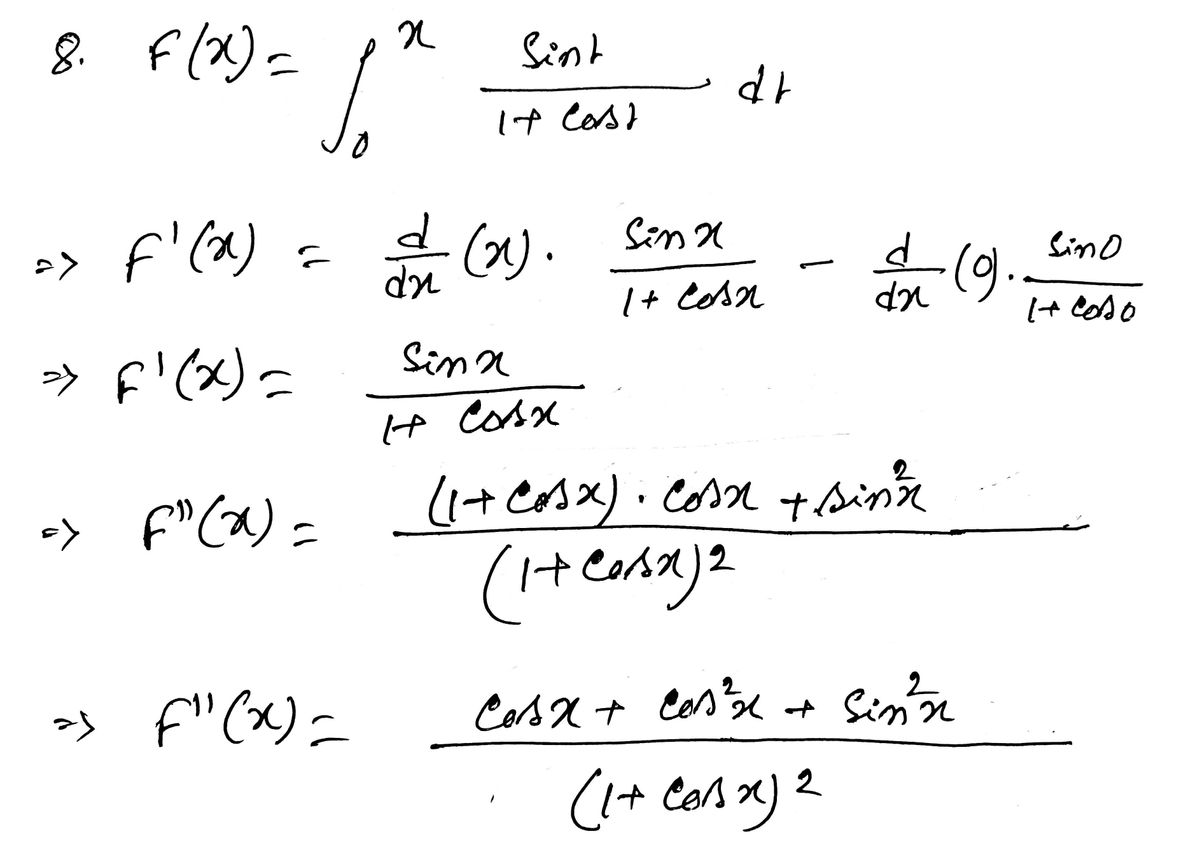 8. F(x) = ∫₀ˣ sint / (1 + cost) dt
=> F'(x) = d/dx (x) · sinx / (1 + cosx) − d/dx (0) · sin0 / (1 + cos0)
=> F'(x) = sinx / (1 + cosx)
=> F''(x) = ((1 + cosx) · cosx + sin²x) / (1 + cosx)²
=> F''(x) = (cosx + cos²x + sin²x) / (1 + cosx)²